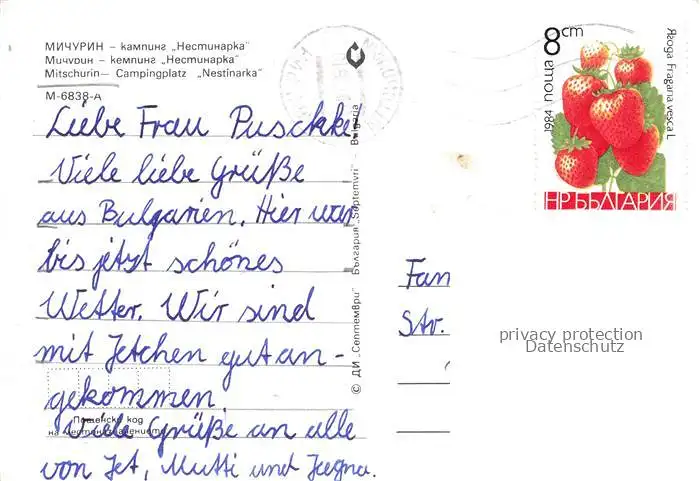 МИЧУРИН – кампинг „Нестинарка"
Мичурин – кемпинг „Нестинарка"
Mitschurin— Campingplatz „Nestinarka"
М-6838-А
Liebe Frau Puschke
Viele liebe Grüße
aus Bulgarien. Hier war
bis jetzt schönes
Wetter. Wir sind
mit Jetchen gut an-
gekommen.
Viele Grüße an alle
von Jet, Mutti und
Пощенски код
на
© ДИ „Септември" България „Septemvri" – Bulgaria
8 cm
поща
1984
Ягода Fragaria vesca L.
НР БЪЛГАРИЯ
Fam
Str.
privacy protection
Datenschutz